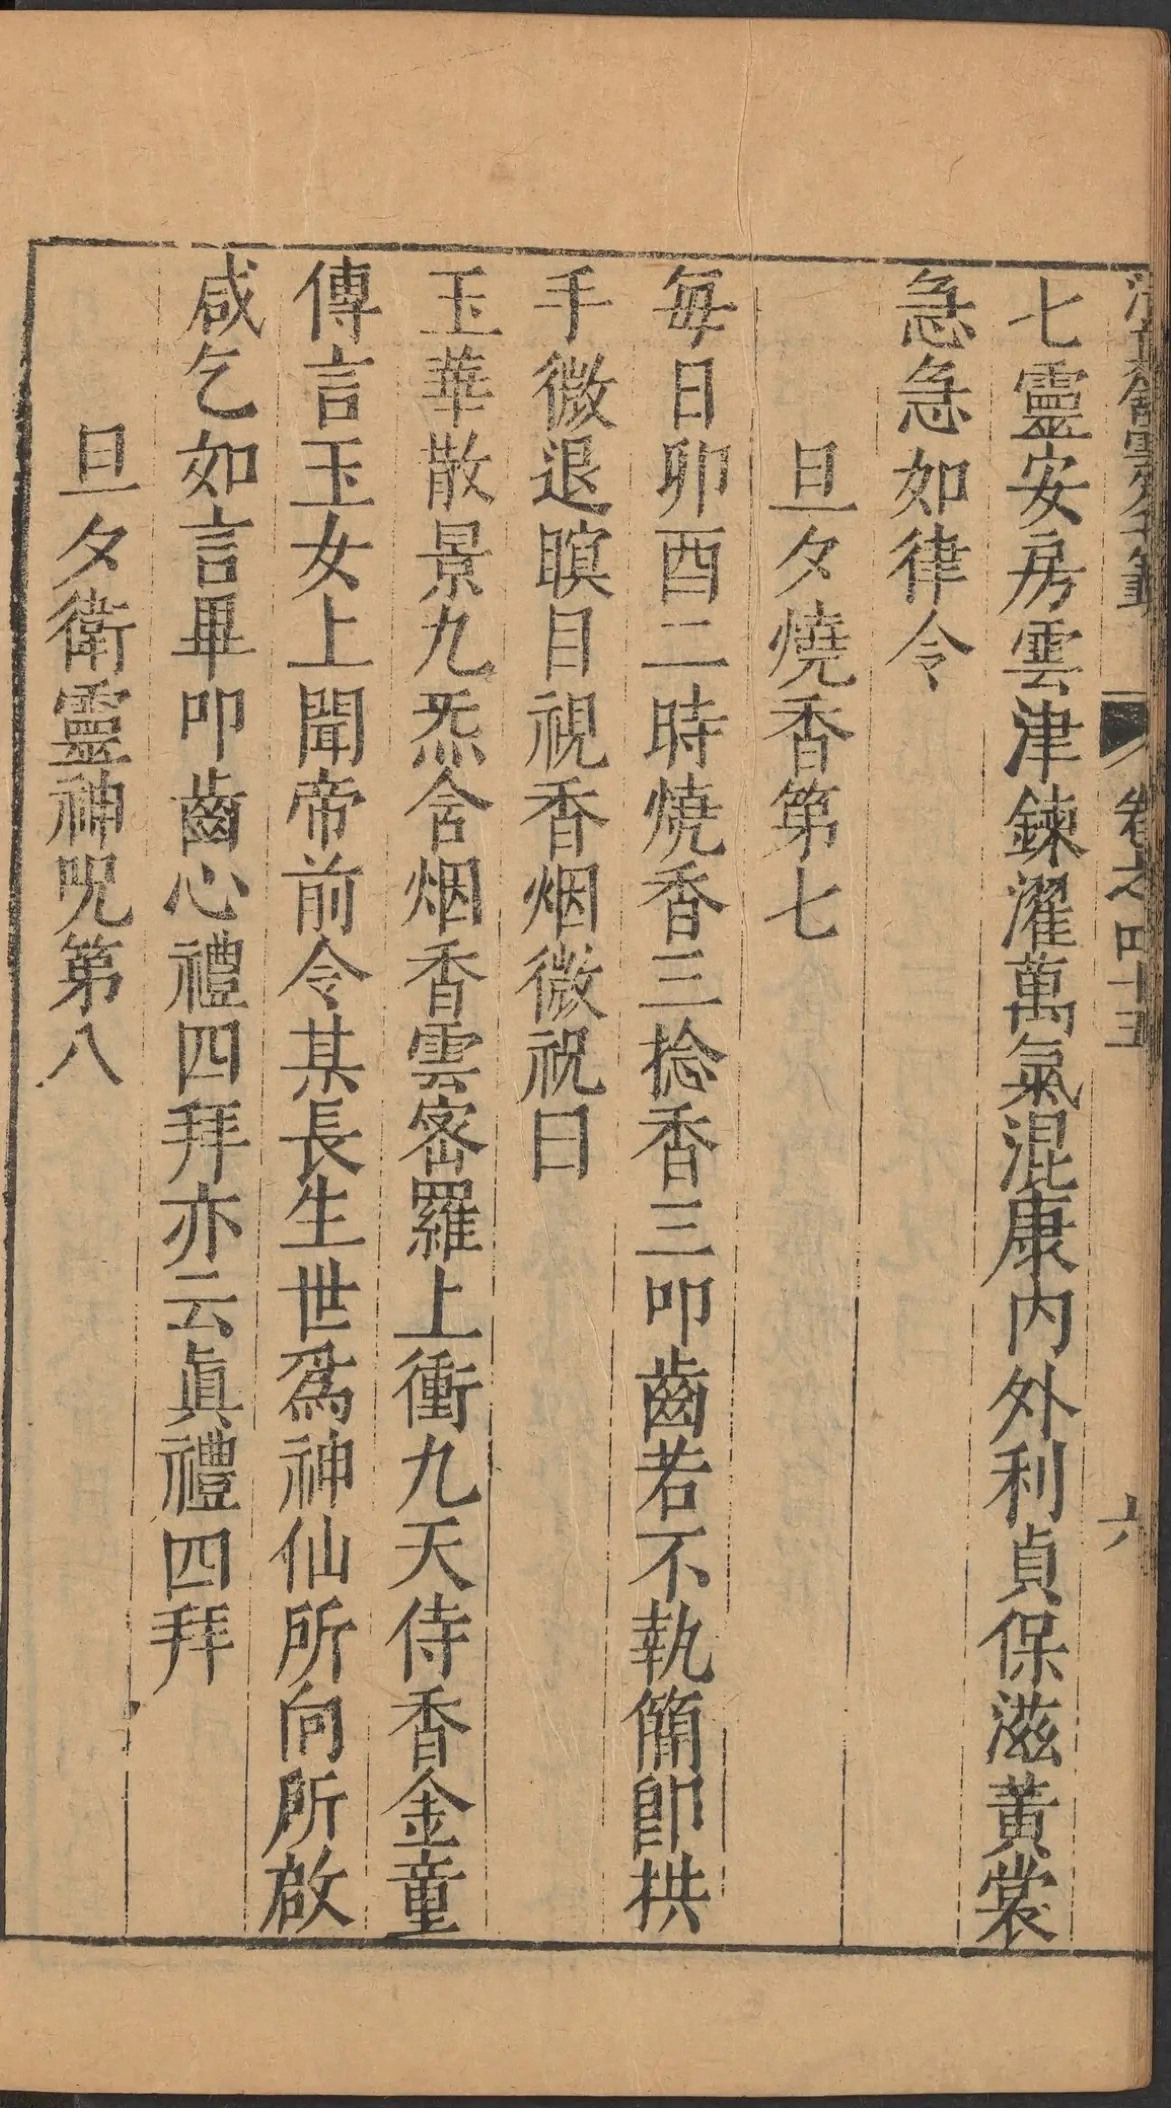 卷之四十五
六
七靈安房雲津鍊濯萬氣混康内外利貞保滋黃裳
急急如律令
旦夕燒香第七
每日卯酉二時燒香三捻香三叩齒若不執簡卽拱
手微退瞑目視香烟微祝曰
玉華散景九炁含烟香雲密羅上衝九天侍香金童
傳言玉女上聞帝前令某長生世爲神仙所向所啟
咸乞如言畢叩齒心禮四拜亦云眞禮四拜
旦夕衛靈神呪第八